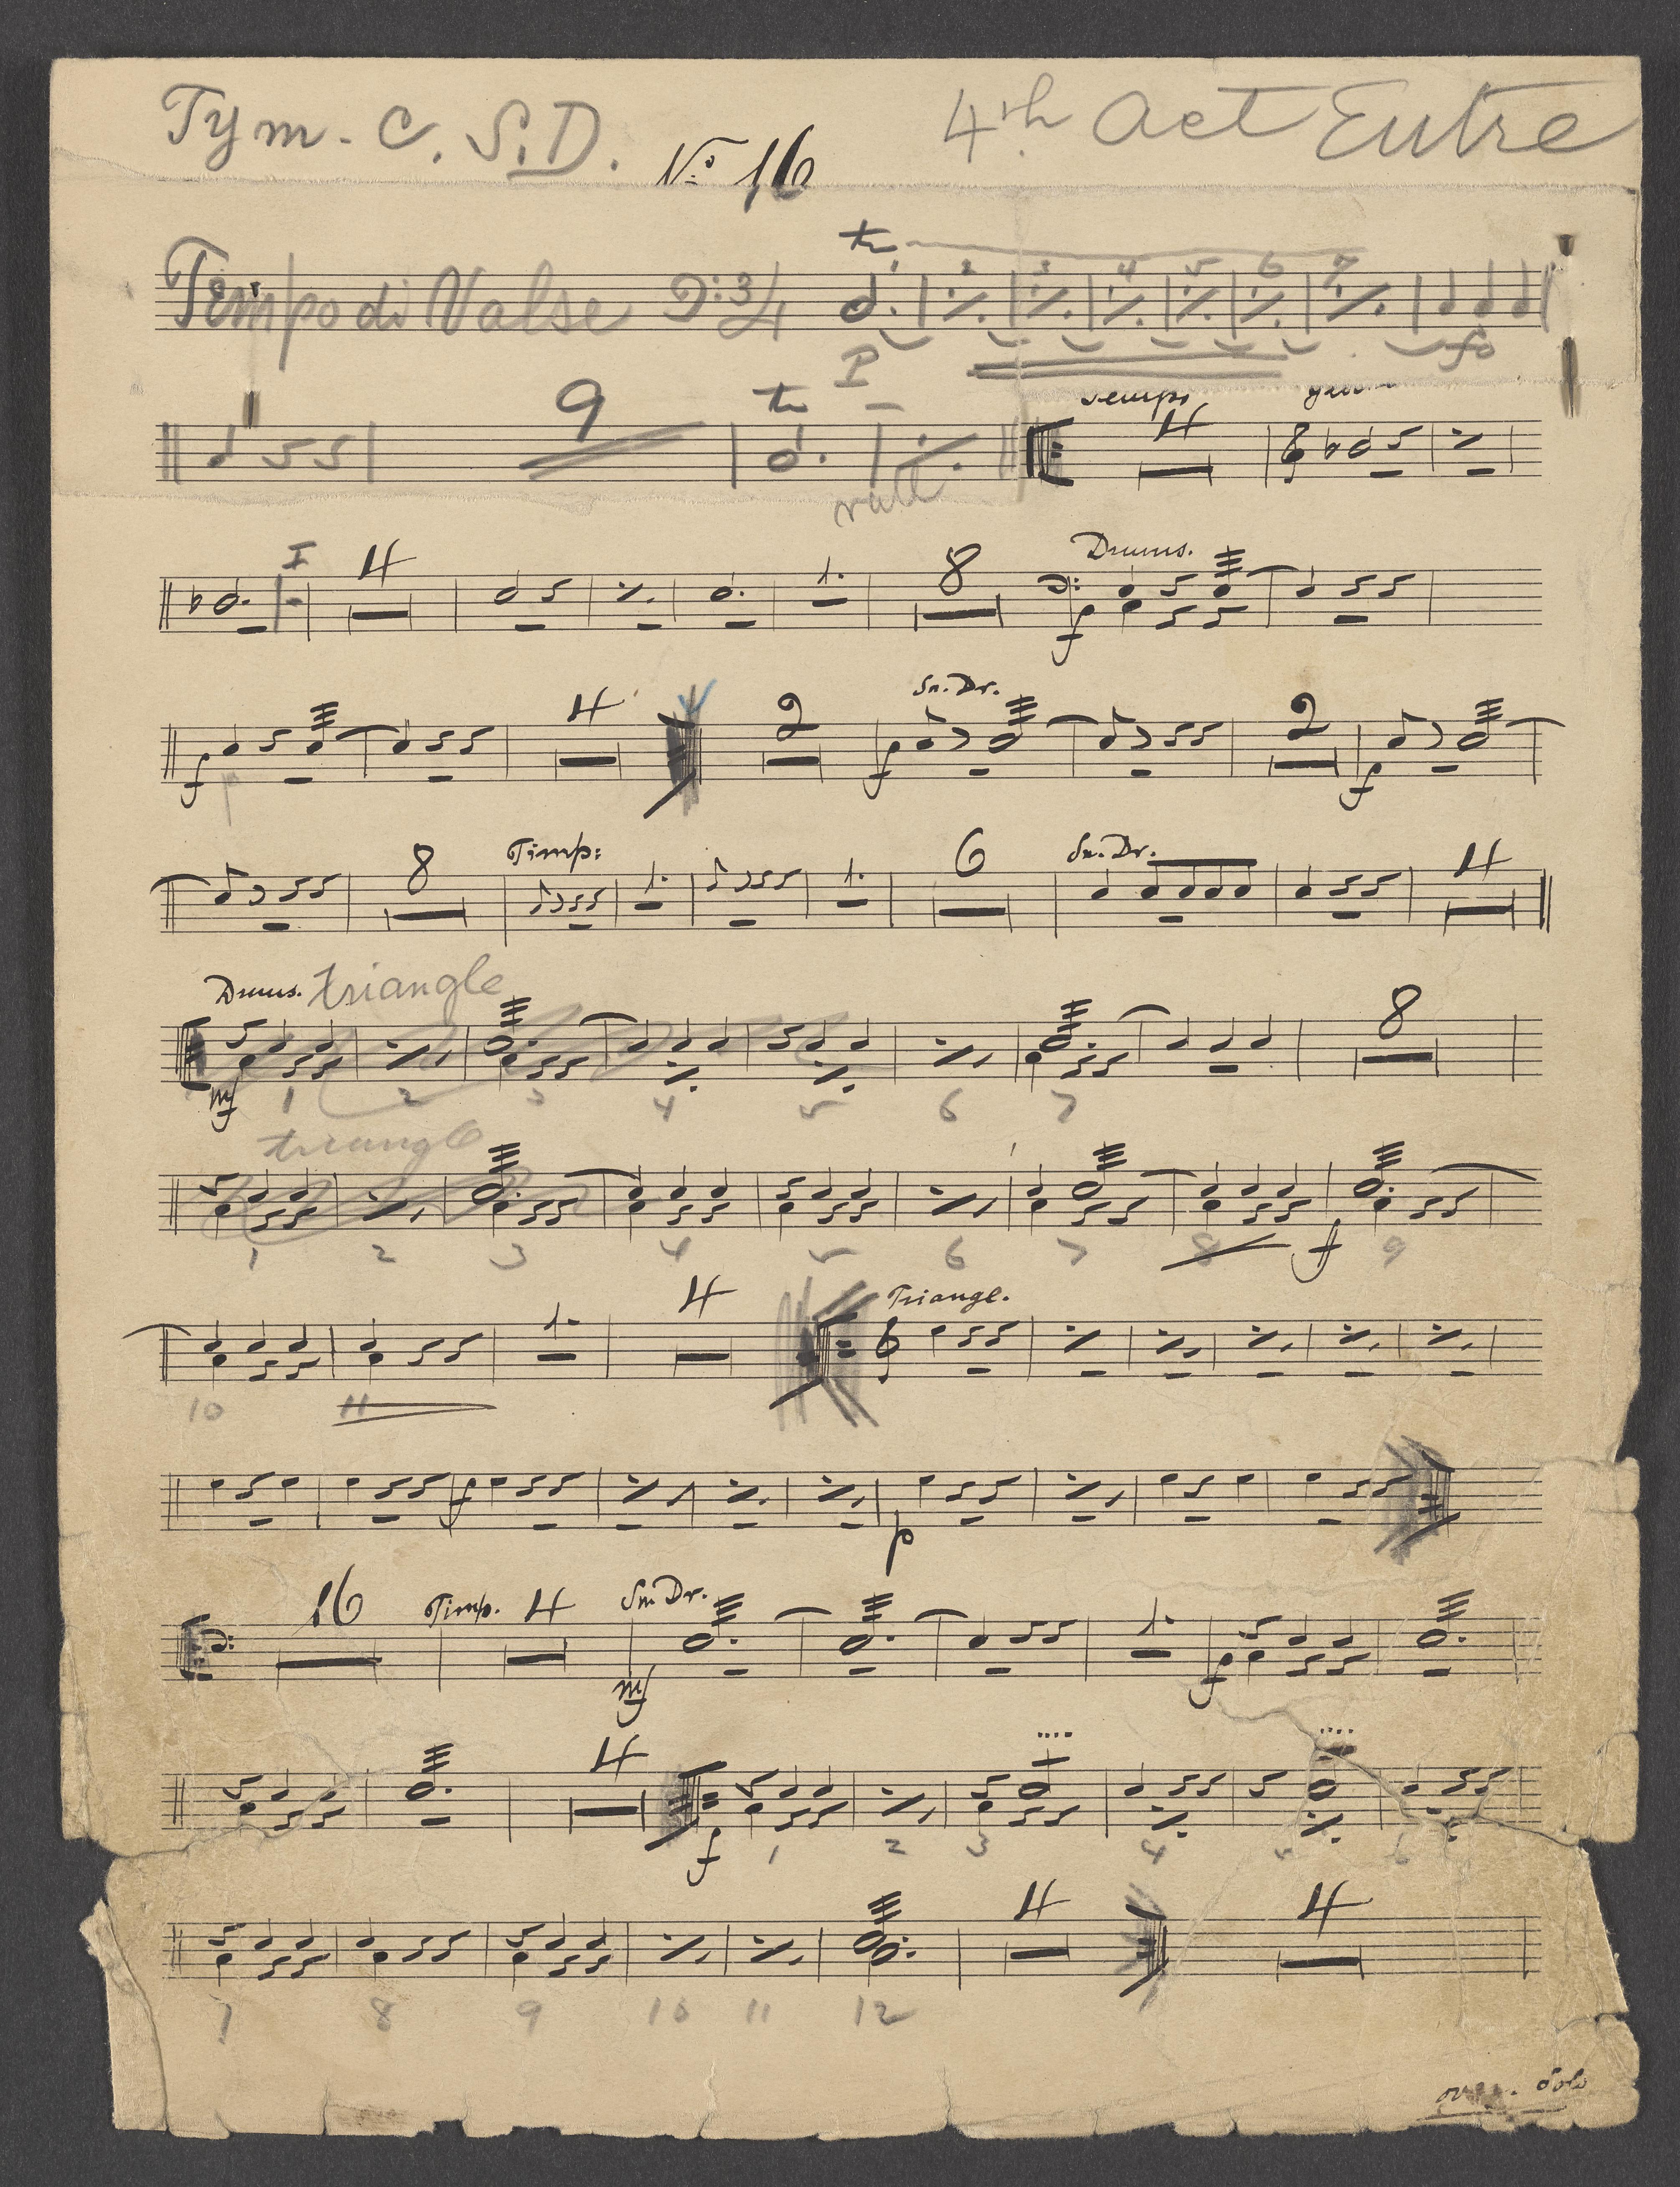 Tym - C. S. D. No. 16 4th act Entre
tr 1 2 3 4 5 6 7
Tempo di Valse 3/4
P fp
9 tr Tempo 4
rall
I 4 1. 8 Drums.
f
4 2 Sn. Dr. 2
f f f
8 Timp: 1. 1. 6 Sn. Dr. 4
Drums. triangle 8
mf 1 2 3 4 5 6 7
triangle
1 2 3 4 5 6 7 8 f 9
1. 4 Triangl.
10 11
f p
16 Timp. 4 Sn Dr. 1.
mf f
4
f 1 2 3 4 5 6
4 4
7 8 9 10 11 12
Solo